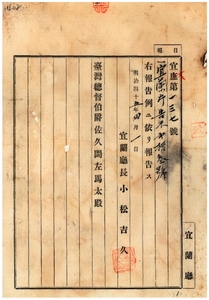 宜庶第一三七號
右報告例ニ依リ報告ス
明治四十五年四月一日
宜蘭廳長 小松吉久
臺灣總督伯爵佐久間左馬太殿
宜蘭廳